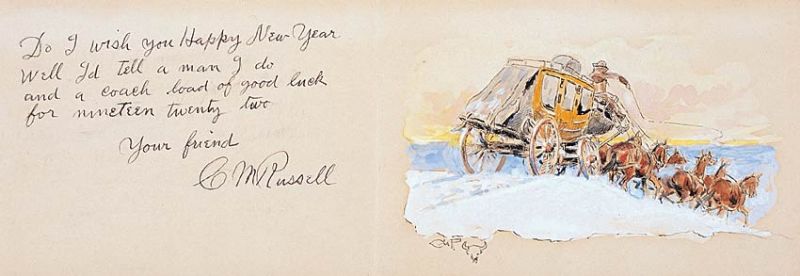 Do I wish you Happy New Year
Well I'd tell a man I do
and a coach load of good luck
for nineteen twenty two
Your friend
C M Russell
CMR